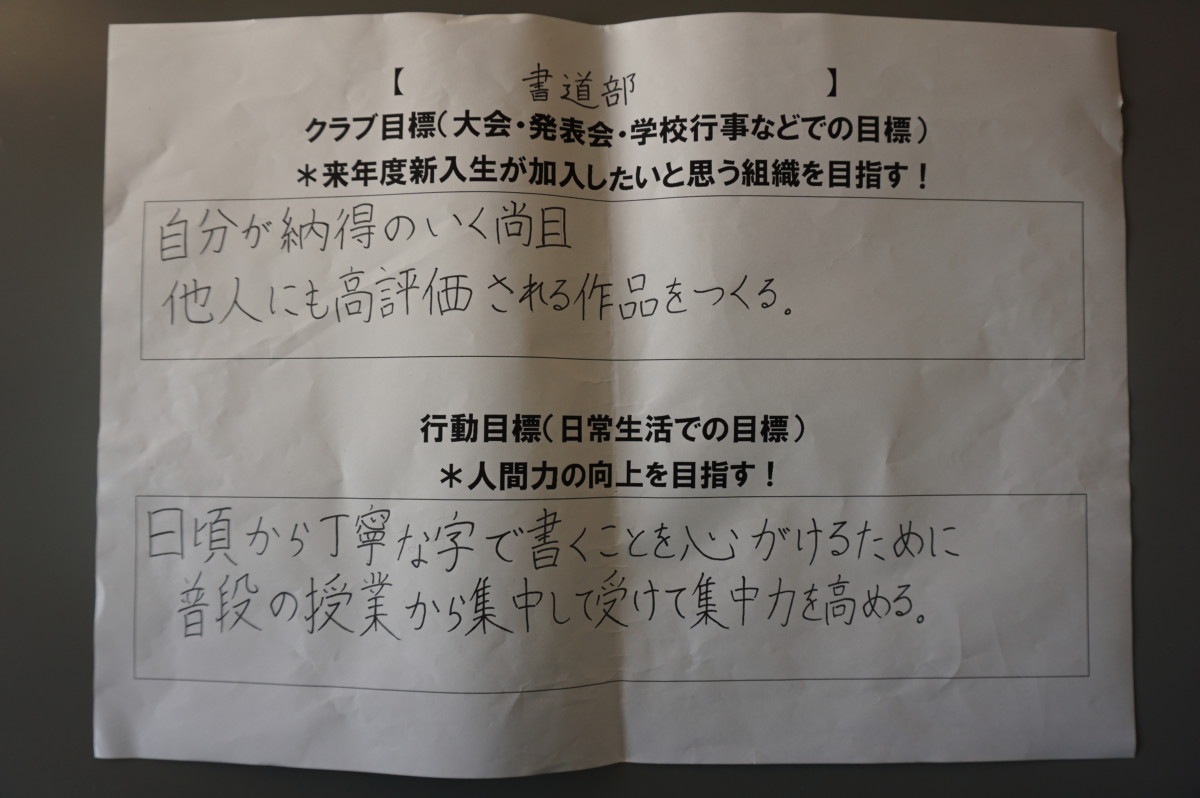 【 書道部 】
クラブ目標(大会・発表会・学校行事などでの目標)
*来年度新入生が加入したいと思う組織を目指す!
自分が納得のいく尚且
他人にも高評価される作品をつくる。
行動目標(日常生活での目標)
*人間力の向上を目指す!
日頃から丁寧な字で書くことを心がけるために
普段の授業から集中して受けて集中力を高める。